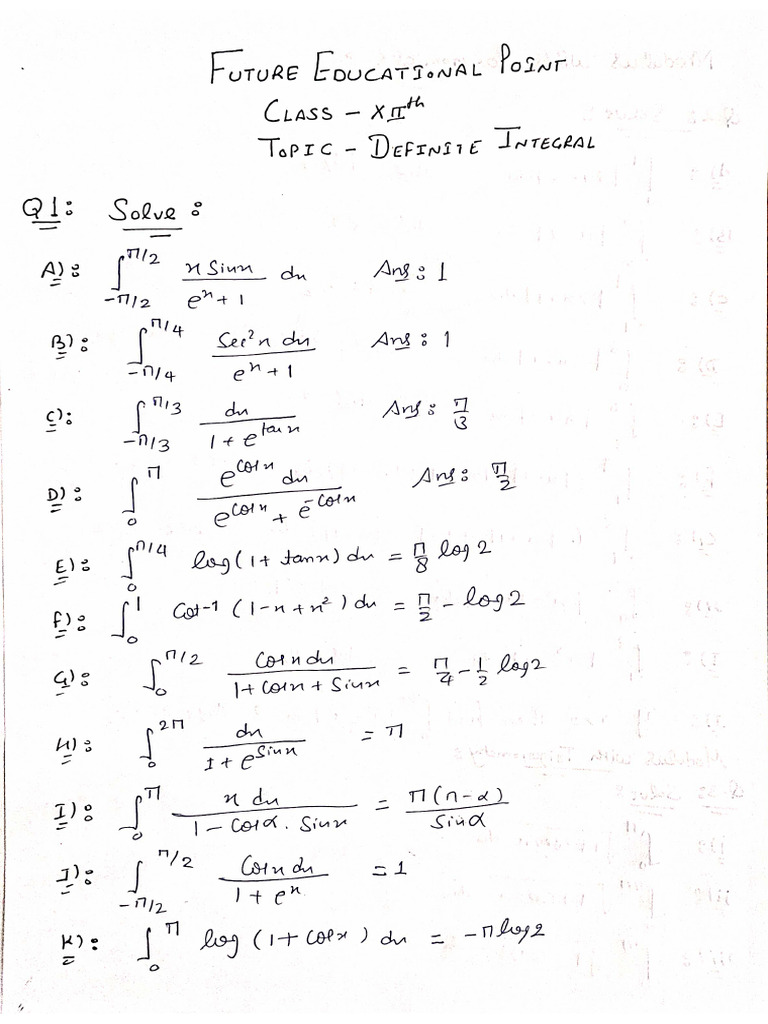 FUTURE EDUCATIONAL POINT
CLASS – XIIth
TOPIC – DEFINITE INTEGRAL
Q1: Solve:
A): ∫_{-π/2}^{π/2} x Sinx / (e^x + 1) dx Ans: 1
B): ∫_{-π/4}^{π/4} Sec²x dx / (e^x + 1) Ans: 1
C): ∫_{-π/3}^{π/3} dx / (1 + e^{tanx}) Ans: π/3
D): ∫_0^π e^{Cosx} dx / (e^{Cosx} + e^{-Cosx}) Ans: π/2
E): ∫_0^{π/4} log(1 + tanx) dx = π/8 log2
F): ∫_0^1 Cot⁻¹ (1-x+x²) dx = π/2 - log2
G): ∫_0^{π/2} Cosx dx / (1 + Cosx + Sinx) = π/4 - 1/2 log2
H): ∫_0^{2π} dx / (1 + e^{Sinx}) = π
I): ∫_0^π x dx / (1 - Cosα. Sinx) = π(π-α) / Sinα
J): ∫_{-π/2}^{π/2} Cosx dx / (1 + e^x) = 1
K): ∫_0^π log (1 + Cosx) dx = -π log2